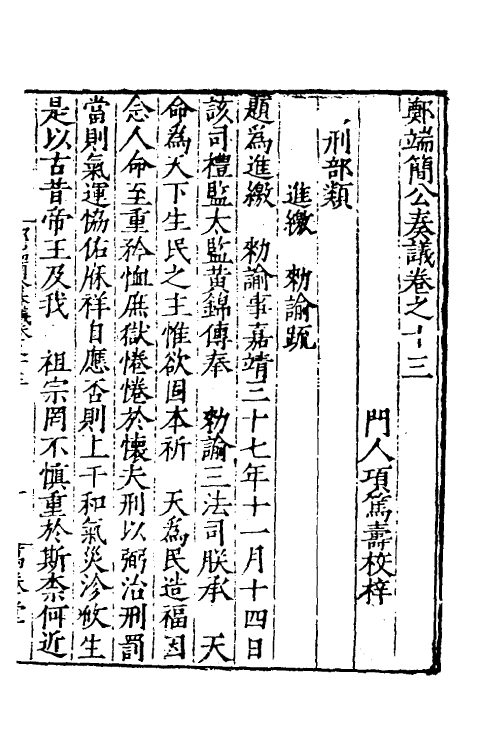 鄭端簡公奏議卷之十三
門人項篤壽校梓
刑部類
進繳　勑諭疏
題為進繳　勑諭事嘉靖三十七年十一月十四日
該司禮監太監黃錦傳奉　勑諭三法司朕承　天
命為天下生民之主惟欲固本祈　天為民造福因
念人命至重矜恤庶獄惓惓於懷夫刑以弼治刑罰
當則氣運協佑庥祥自應否則上干和氣災沴攸生
是以古昔帝王及我　祖宗罔不慎重於斯柰何近